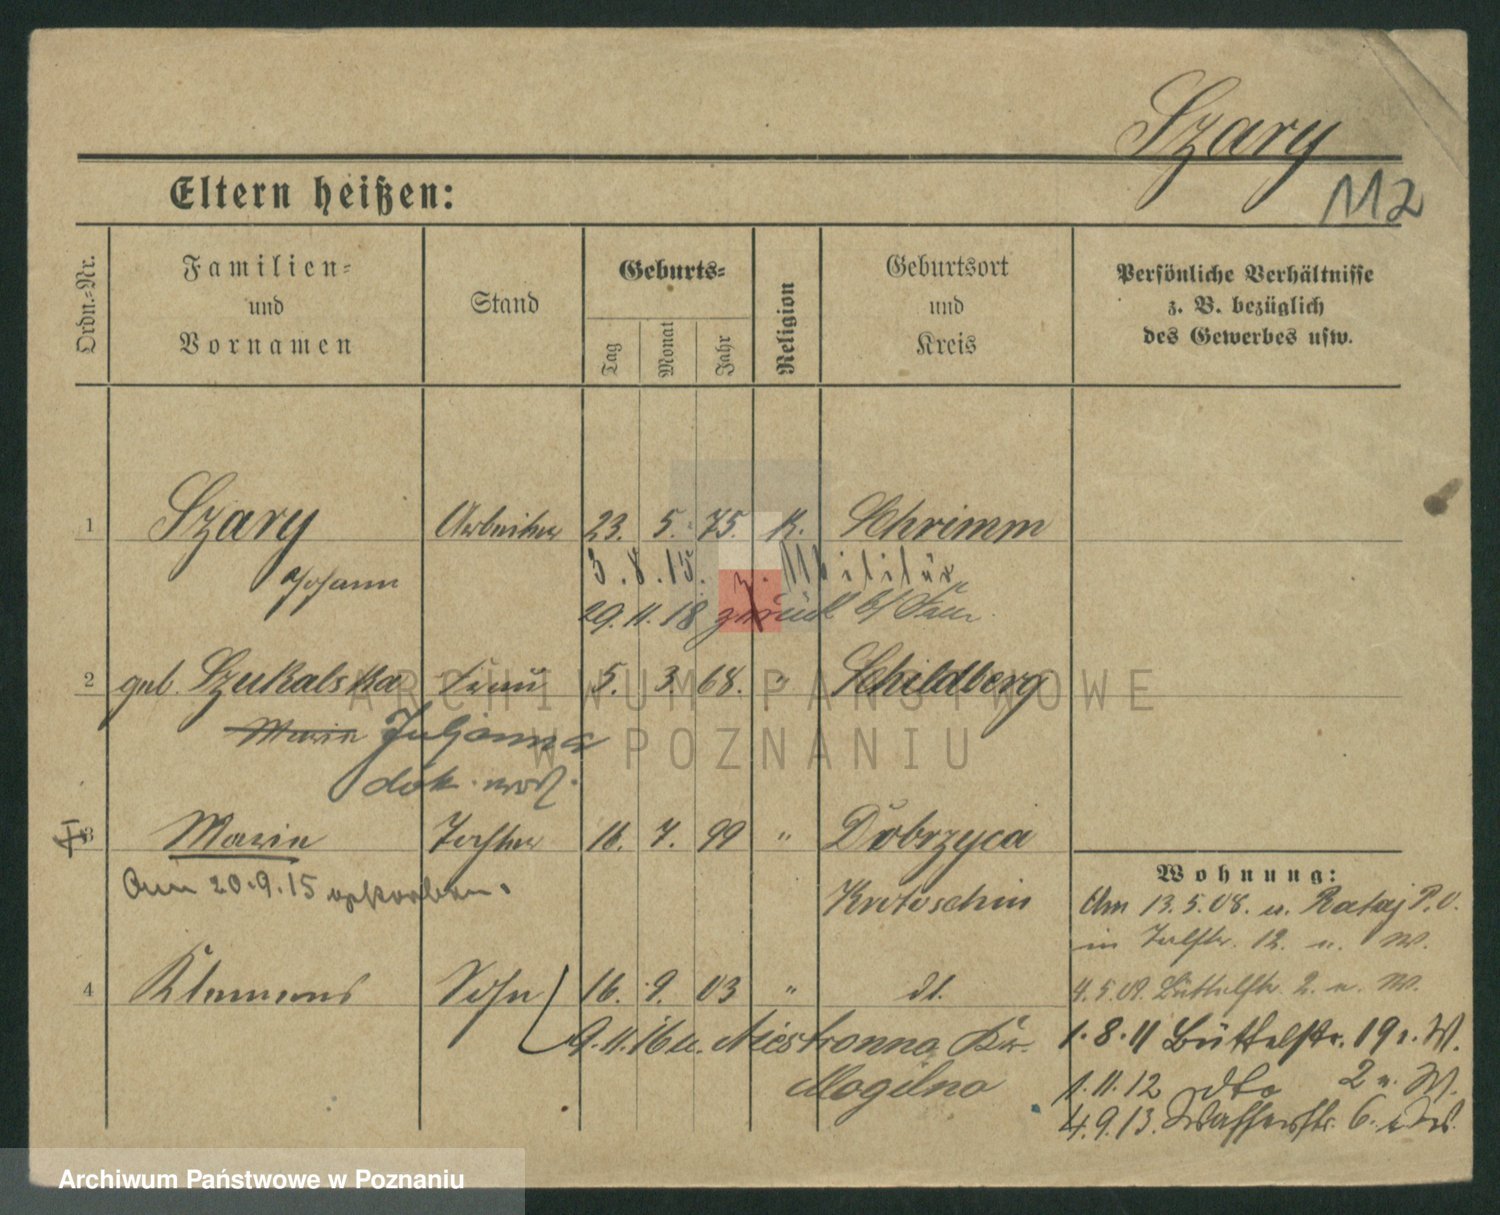 Szary
112
Eltern heißen:
Ordn.-Nr.
Familien- und Vornamen
Stand
Geburts-
Tag
Monat
Jahr
Religion
Geburtsort und Kreis
Persönliche Verhältnisse z. B. bezüglich des Gewerbes usw.
1 Szary Arbeiter 23. 5. 75. K. Schrimm
Johann 3.8.15. z. Militär
29.11.18 zurück
2 geb. Szukalska Frau 5. 3. 68. " Schildberg
Marie Juljanna
dok.
3 Marie Tochter 16. 7. 99 " Dobrzyca
Am 20.9.15 Krotoschin
4 Klemens Sohn 16. 9. 03 " dt.
9.11.16 n.
Mogilno
Wohnung:
Am 13.5.08. v. Rataj P.O.
in 12. n. W.
4.5.09. Büttelstr. 2. n. W.
1.8.11 Büttelstr. 19 W.
1.11.12 dto 2 n. W.
4.9.13. Wasserstr. 6.
ARCHIWUM PAŃSTWOWE
W POZNANIU
Archiwum Państwowe w Poznaniu